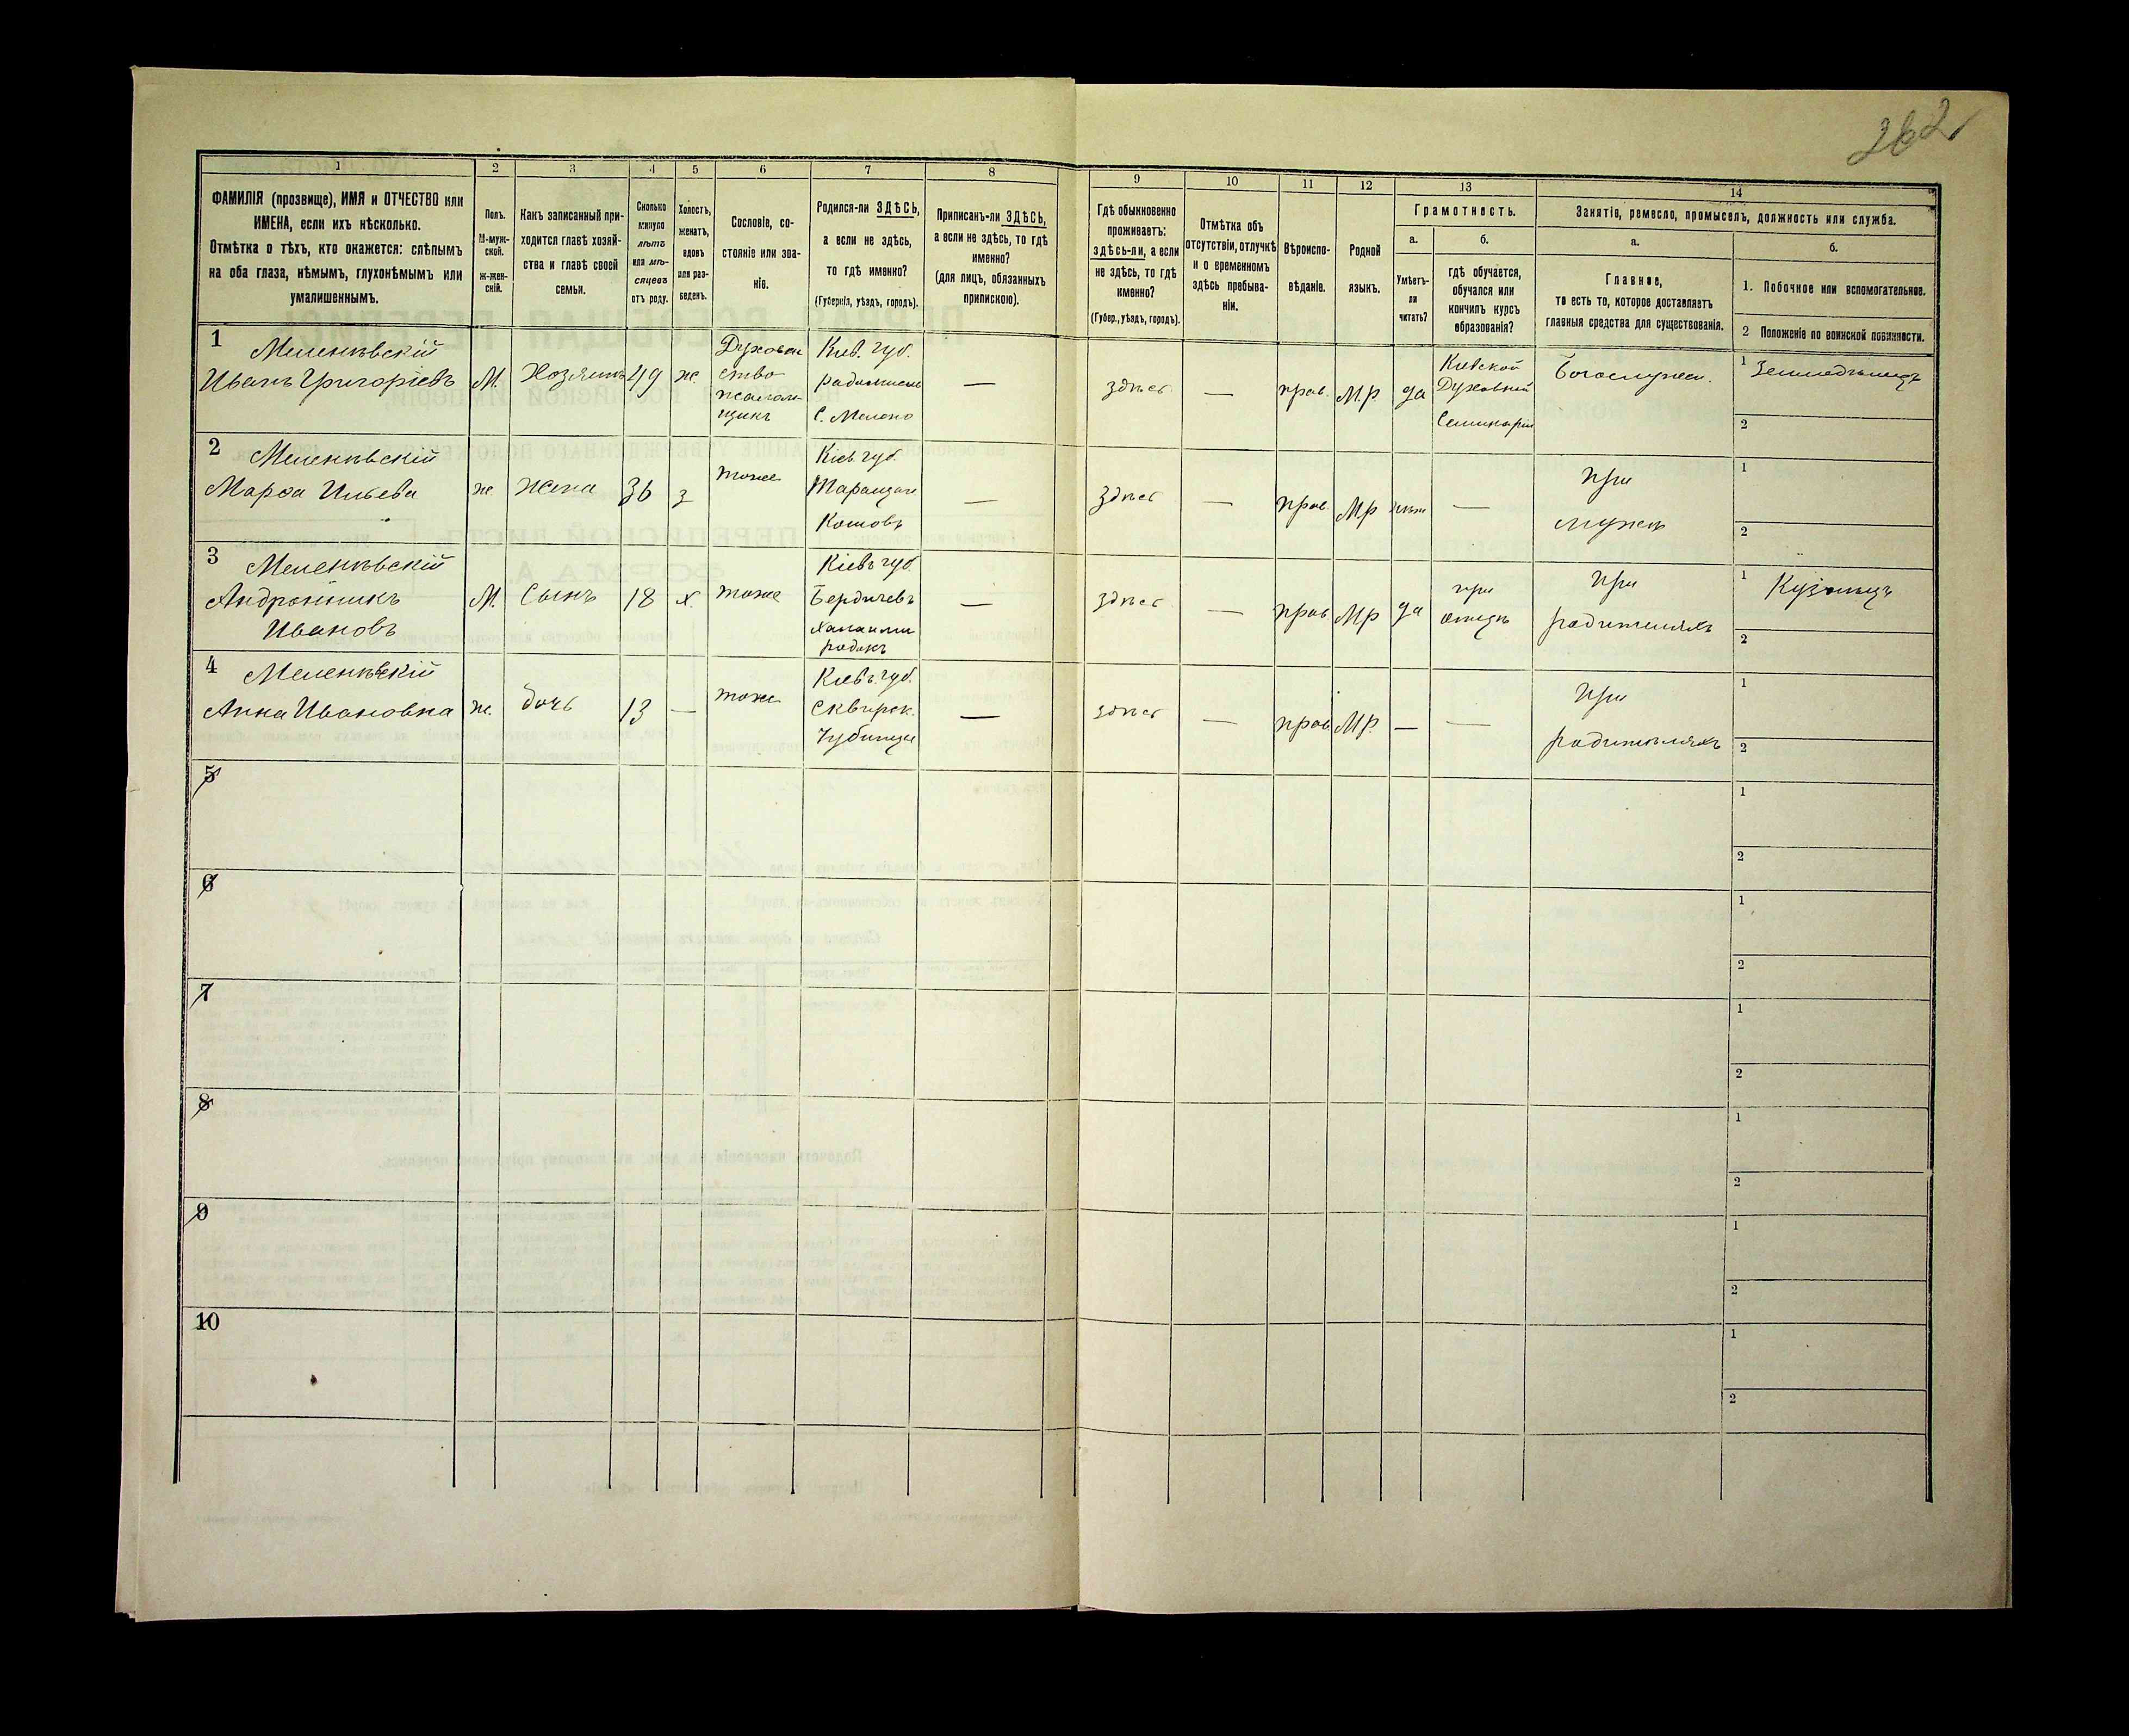 262
1
2
3
4
5
6
7
8
9
10
11
12
13
14
ФАМИЛІЯ (прозвище), ИМЯ и ОТЧЕСТВО или
ИМЕНА, если ихъ нѣсколько.
Отмѣтка о тѣхъ, кто окажется: слѣпымъ
на оба глаза, нѣмымъ, глухонѣмымъ или
умалишеннымъ.
Полъ.
М-муж-
ской.
Ж-жен-
скій.
Какъ записанный при-
ходится главѣ хозяй-
ства и главѣ своей
семьи.
Сколько
минуло
лѣтъ
или мѣ-
сяцевъ
отъ роду.
Холостъ,
женатъ,
вдовъ
или раз-
веденъ.
Сословіе, со-
стояніе или зва-
ніе.
Родился-ли ЗДѢСЬ,
а если не здѣсь,
то гдѣ именно?
(Губернія, уѣздъ, городъ).
Приписанъ-ли ЗДѢСЬ,
а если не здѣсь, то гдѣ
именно?
(для лицъ, обязанныхъ
припискою).
Гдѣ обыкновенно
проживаетъ:
здѣсь-ли, а если
не здѣсь, то гдѣ
именно?
(Губер., уѣздъ, городъ).
Отмѣтка объ
отсутствіи, отлучкѣ
и о временномъ
здѣсь пребыва-
ніи.
Вѣроиспо-
вѣданіе.
Родной
языкъ.
Грамотность.
а.
Умѣетъ-
ли
читать?
б.
гдѣ обучается,
обучался или
кончилъ курсъ
образованія?
Занятіе, ремесло, промыселъ, должность или служба.
а.
Главное,
то есть то, которое доставляетъ
главныя средства для существованія.
б.
1. Побочное или вспомогательное.
2 Положеніе по воинской повинности.
1
Иванъ Григоріевъ
М.
Хозяинъ
49
ж.
Духовен
ство
Кіев. губ.
—
здѣсь
—
прав.
М.р.
да
Кіевской
Духовной
Семинаріи
Богослужен.
1 Земледѣлецъ
2
2
Марѳа Ильева
ж.
жена
36
з
тоже
Кіев губ.
—
здѣсь
—
прав.
Мр
—
при
мужѣ
1
2
3
Андронникъ
Ивановъ
М.
Сынъ
18
х.
тоже
Кіевъ губ.
Бердичевъ
—
здѣсь
—
прав.
Мр
да
при
отцѣ
при
родителяхъ
1 Кузнецъ
2
4
Анна Ивановна
ж.
дочь
13
—
тоже
Кіевъ. губ.
Сквирск.
Чубинцы
—
здѣсь
—
прав.
Мр.
—
—
при
родителяхъ
1
2
5
1
2
6
1
2
7
1
2
8
1
2
9
1
2
10
1
2